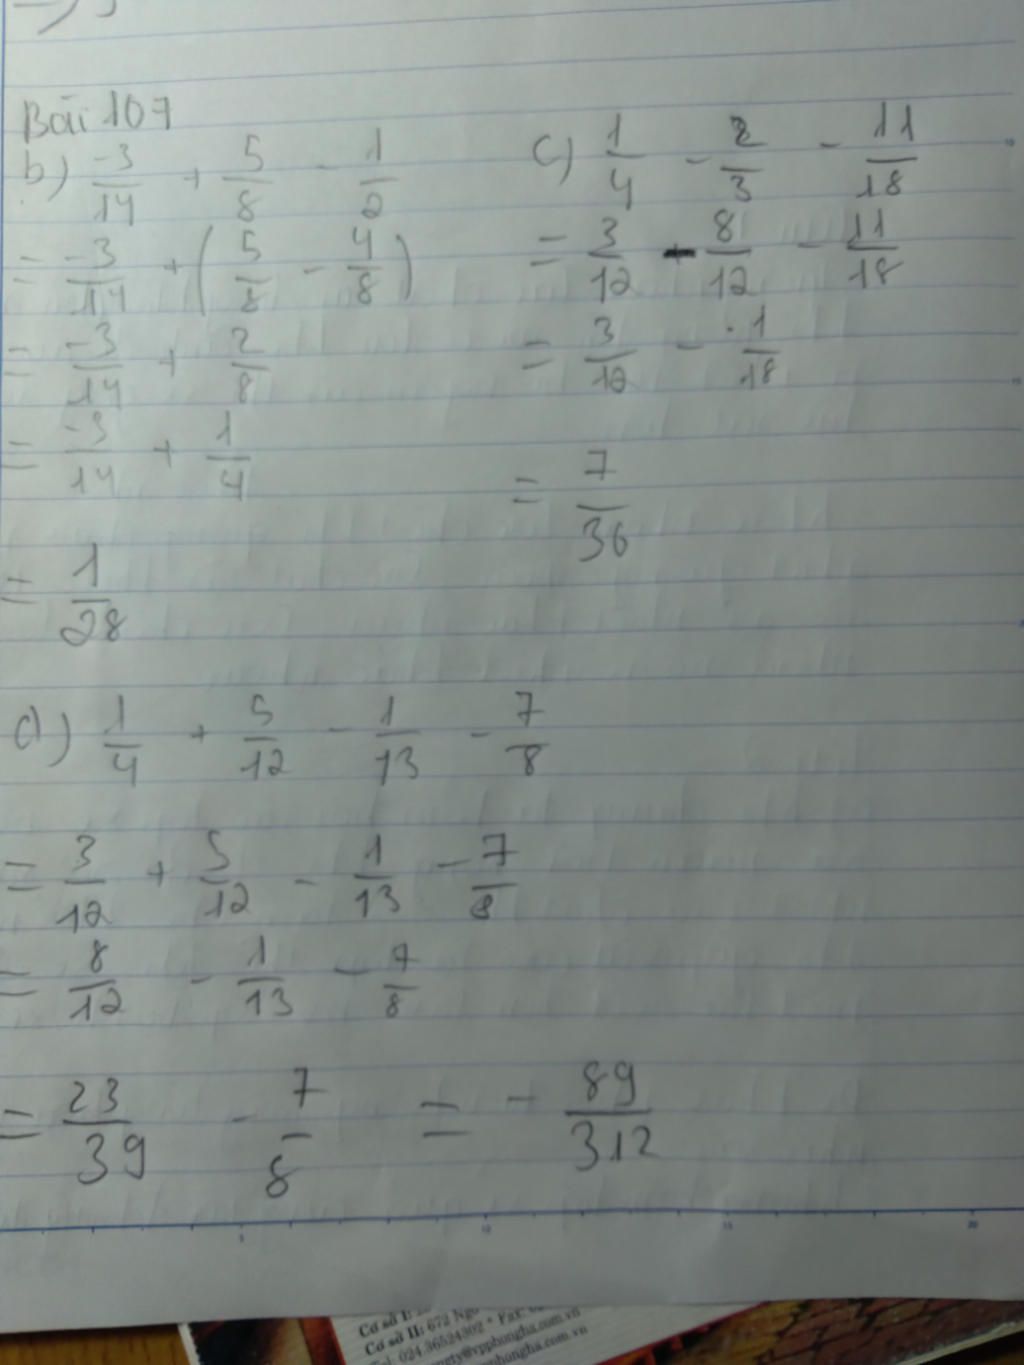 Bài 107
b) -3/14 + 5/8 - 1/2
= -3/14 + (5/8 - 4/8)
= -3/14 + 2/8
= -3/14 + 1/4
= 1/28
c) 1/4 - 2/3 - 11/18
= 3/12 - 8/12 - 11/18
= 3/12 - 1/18
= 7/36
d) 1/4 + 5/12 - 1/13 - 7/8
= 3/12 + 5/12 - 1/13 - 7/8
= 8/12 - 1/13 - 7/8
= 23/39 - 7/8 = - 89/312
5 10 15 20
Cơ sở I:
Cơ sở II: 672 Ngô
Tel: 024.36524302 * Fax:
@vpphongha.com.vn
phongha.com.vn